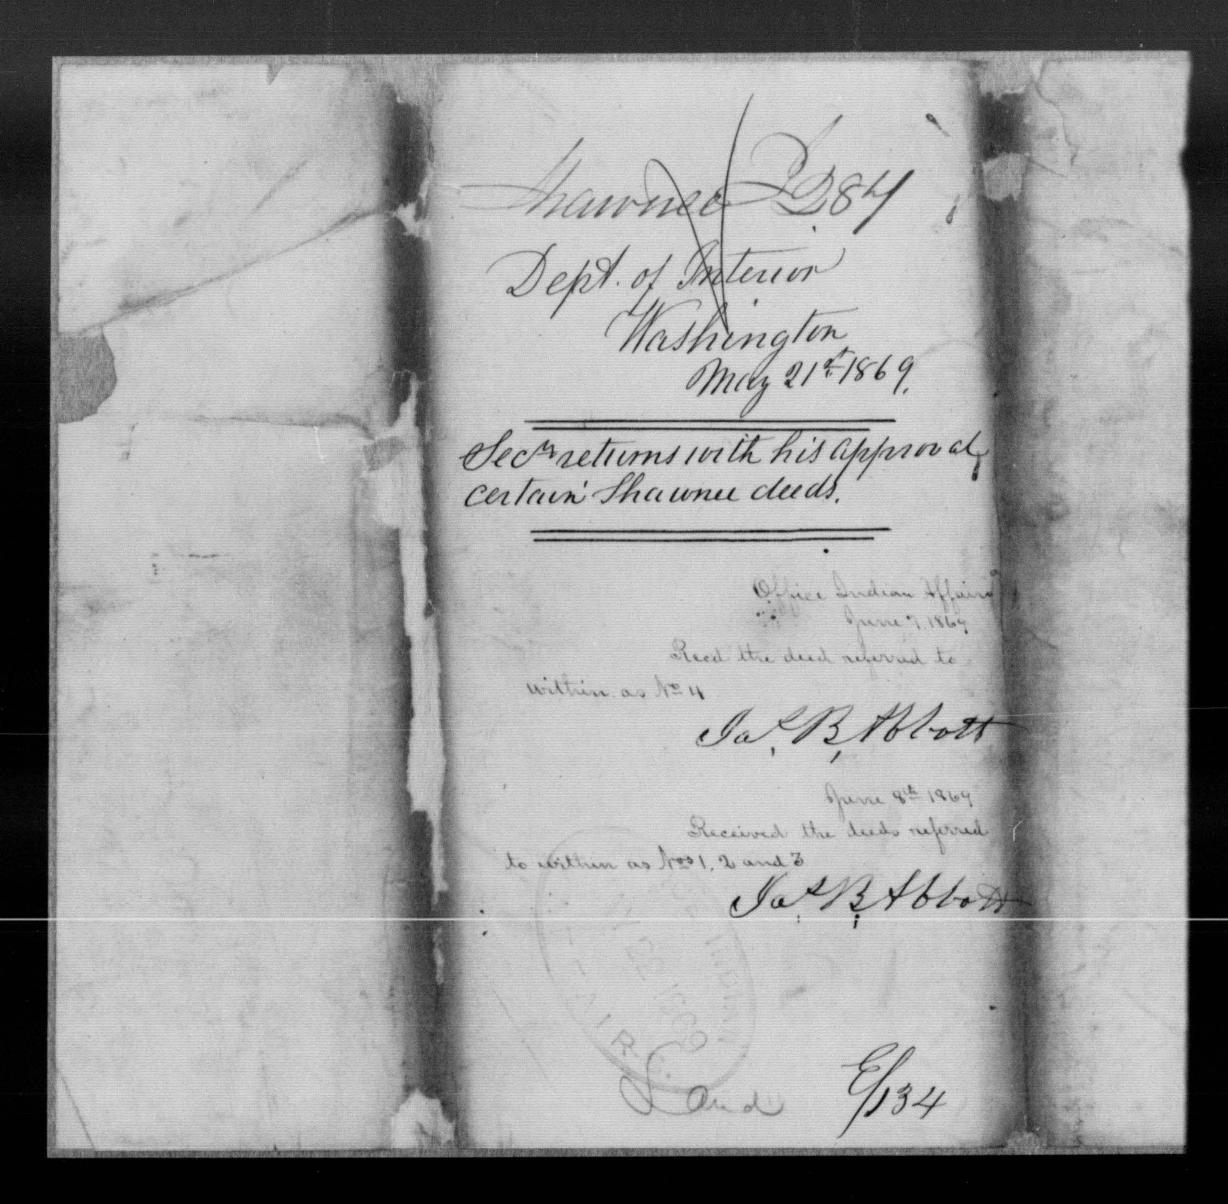 Shawnee I 284
Dept. of Interior
Washington
May 21st 1869.
Secy returns with his approval,
certain Shawnee deeds.
Office Indian Affairs
June 7, 1869
Recd the deed referred to
within as No 4
Jas. B. Abbott
June 8th 1869
Received the deeds referred
to within as Nos 1, 2 and 3
Jas. B. Abbott
INDIAN
22 1869
AFFAIRS
Land
E/134